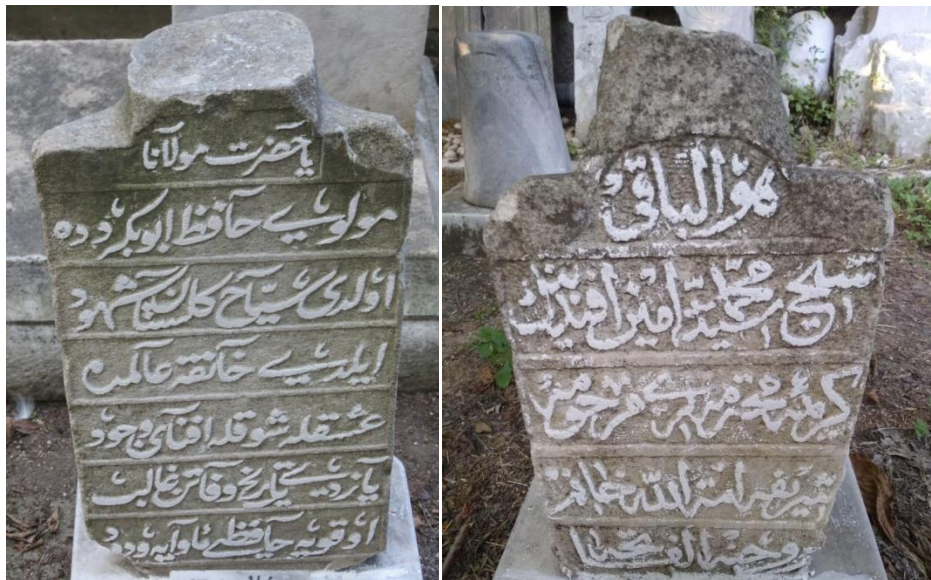 يا حضرت مولانا
مولوى حافظ ابوبكر دده
اولدى سياح كلستان شهود
ايلدى خانقه عالمده
عشقله شوقله افناى وجود
يازدى تاريخ وفاتن غالب
اوقويه حافظى نا وآيه ودود
هو الباقى
الشيخ السيد محمد امين افندينك
كريمه محترمه لرى مرحومه
شريفه امة الله خانم
روحنه الفاتحه